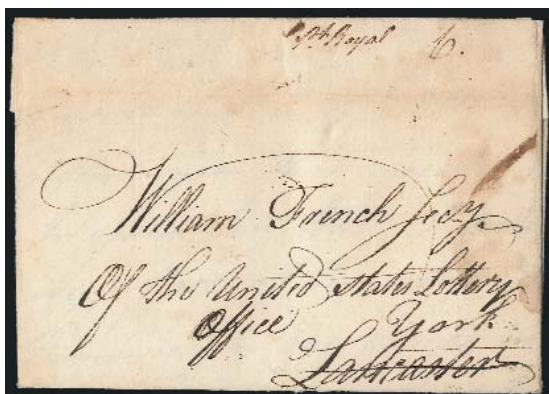 Pt. Royal 6.
William French Secy.
Of the United States Lottery
Office York
Lancaster